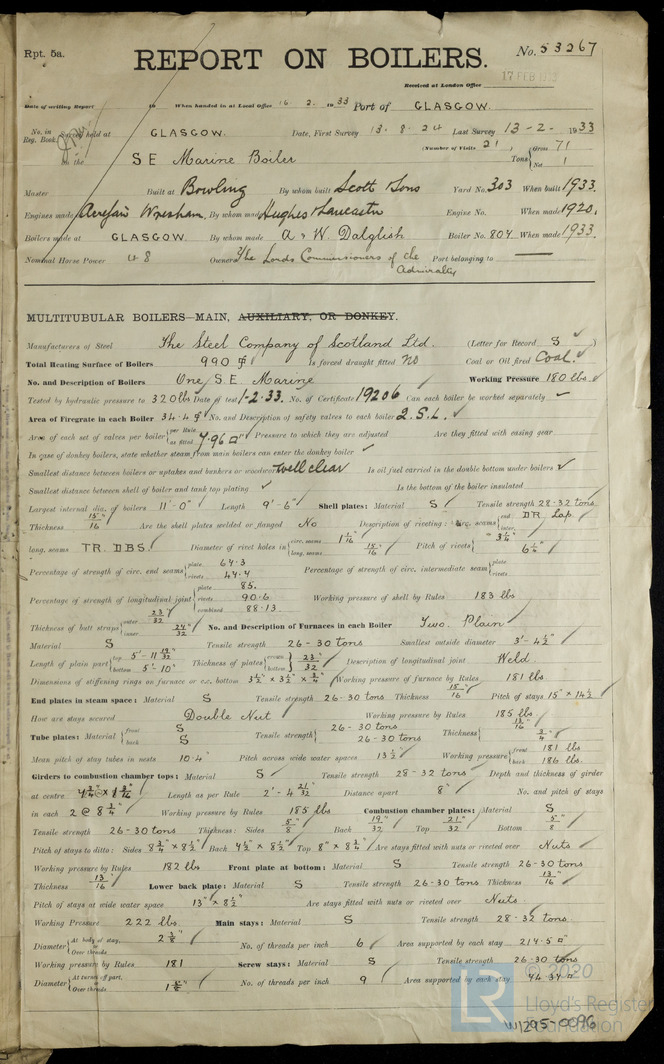 Rpt. 5a.
REPORT ON BOILERS.
No. 53267
Received at London Office 17 FEB 1933
Date of writing Report 19 When handed in at Local Office 16. 2. 1933 Port of GLASGOW.
No. in Reg. Book. Survey held at GLASGOW. Date, First Survey 13-8-24 Last Survey 13-2-1933
(Number of Visits 21)
on the S E Marine Boiler Tons { Gross 71 Net 1
Master Built at Bowling By whom built Scott & Sons Yard No. 303 When built 1933.
Engines made Acrefair Wrexham. By whom made Hughes & Lancaster Engine No. When made 1920.
Boilers made at GLASGOW By whom made A & W. Dalglish Boiler No. 807. When made 1933.
Nominal Horse Power 48 Owners The Lords Commissioners of the Admiralty Port belonging to
MULTITUBULAR BOILERS—MAIN, AUXILIARY, OR DONKEY.
Manufacturers of Steel The Steel Company of Scotland Ltd. (Letter for Record S ✓)
Total Heating Surface of Boilers 990 Is forced draught fitted NO Coal or Oil fired Coal ✓
No. and Description of Boilers One, S.E. Marine Working Pressure 180 lbs ✓
Tested by hydraulic pressure to 320 lbs Date of test 1-2-33. No. of Certificate 19206 Can each boiler be worked separately ✓
Area of Firegrate in each Boiler 34.4 No. and Description of safety valves to each boiler 2. S.L. ✓
Area of each set of valves per boiler { per Rule as fitted 7.96 □" Pressure to which they are adjusted Are they fitted with easing gear
In case of donkey boilers, state whether steam from main boilers can enter the donkey boiler ✓
Smallest distance between boilers or uptakes and bunkers or woodwork well clear Is oil fuel carried in the double bottom under boilers ✓
Smallest distance between shell of boiler and tank top plating ✓ Is the bottom of the boiler insulated
Largest internal dia. of boilers 11'-0" Length 9'-6" Shell plates: Material S Tensile strength 28-32 tons
Thickness 15/16" Are the shell plates welded or flanged No Description of riveting: circ. seams { end DR Lap inter.
long. seams TR. DBS. Diameter of rivet holes in { circ. seams 1 1/16" long. seams 15/16" Pitch of rivets { 3 1/4" 6 1/4"
Percentage of strength of circ. end seams { plate 64.3 rivets 44.4 Percentage of strength of circ. intermediate seam { plate rivets
Percentage of strength of longitudinal joint { plate 85. rivets 90.6 combined 88.13. Working pressure of shell by Rules 183 lbs
Thickness of butt straps { outer 23/32 inner 24/32 No. and Description of Furnaces in each Boiler Two. Plain
Material S Tensile strength 26-30 tons Smallest outside diameter 3'-4 1/2"
Length of plain part { top 5'-11 19/32 bottom 5'-10" Thickness of plates { crown bottom } 23/32 Description of longitudinal joint Weld
Dimensions of stiffening rings on furnace or c.c. bottom 3 1/2" x 3 1/2" x 3/4" Working pressure of furnace by Rules 181 lbs
End plates in steam space: Material S Tensile strength 26-30 tons Thickness 15/16" Pitch of stays 15" x 14 1/2"
How are stays secured Double Nut Working pressure by Rules 185 lbs
Tube plates: Material { front S back S Tensile strength { 26-30 tons 26-30 tons Thickness { 13/16" 3/4"
Mean pitch of stay tubes in nests 10.4" Pitch across wide water spaces 13 1/2 Working pressure { front 181 lbs back 186 lbs.
Girders to combustion chamber tops: Material S Tensile strength 28-32 tons Depth and thickness of girder
at centre Length as per Rule 2'-4 21/32" Distance apart 8" No. and pitch of stays
in each 2 @ 8 3/4" Working pressure by Rules 185 lbs Combustion chamber plates: Material S
Tensile strength 26-30 tons Thickness: Sides 5/8" Back 19/32" Top 21/32" Bottom 5/8"
Pitch of stays to ditto: Sides 8 3/4" x 8 1/2" Back 9 1/2" x 8 1/2" Top 8" x 8 3/4" Are stays fitted with nuts or riveted over Nuts
Working pressure by Rules 182 lbs Front plate at bottom: Material S Tensile strength 26-30 tons
Thickness 13/16" Lower back plate: Material S Tensile strength 26-30 tons Thickness 13/16"
Pitch of stays at wide water space 13" x 8 1/2" Are stays fitted with nuts or riveted over Nuts.
Working Pressure 222 lbs. Main stays: Material S Tensile strength 28-32 tons
Diameter { At body of stay, or Over threads 2 3/8" No. of threads per inch 6 Area supported by each stay 214.5 □"
Working pressure by Rules 181 Screw stays: Material S Tensile strength 26-30 tons
Diameter { At turned off part, or Over threads No. of threads per inch 9 Area supported by each stay 74.37 □"
LR
© 2020
Lloyd's Register
Foundation
W1295-0096